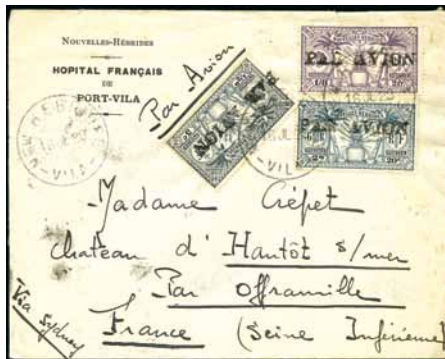 NOUVELLES-HÉBRIDES
HOPITAL FRANÇAIS
DE
PORT-VILA
Par Avion
PAR AVION
PAR AVION
PAR AVION
Madame Crépet
Chateau d'Hautôt s/mer
Par Offranville
France (Seine Inférieure)
Via Sydney